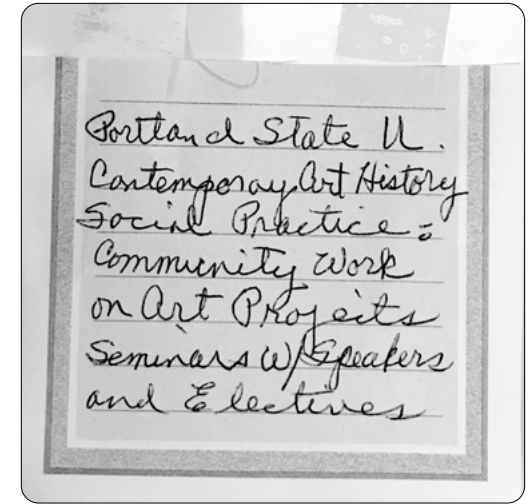 Portland State U.
Contemporay Art History
Social Practice:
Community Work
on Art Projects
Seminars W/ Speakers
and Electives